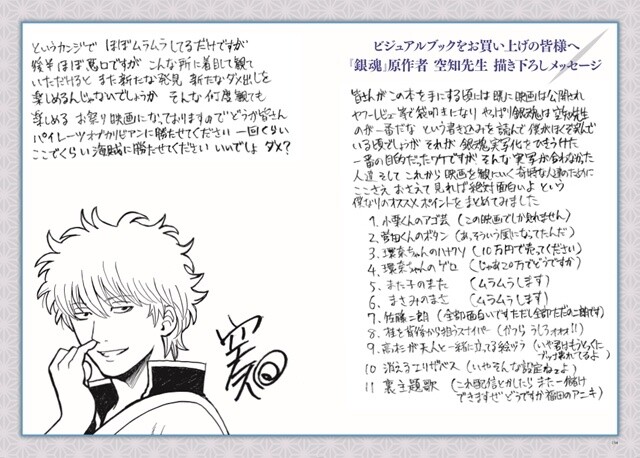 ビジュアルブックをお買い上げの皆様へ
『銀魂』原作者 空知先生 描き下ろしメッセージ
皆さんがこの本を手にする頃には既に映画は公開され
ヤフーレビュー等で袋叩きになり やっぱり銀魂は空知先生
のが一番だな という書き込みを読んで 僕がほくそ笑んで
いる頃でしょうが それが 銀魂実写化をひきうけた
一番の目的だったワケですが そんな実写が合わなかった
人達 そして これから映画を観にいく奇特な人達のために
ここさえ おさえて見れば絶対面白いよ という
僕なりのオススメポイントをまとめてみました
1. 小栗くんのアゴ芸 (この映画でしか見れません)
2. 菅田くんのボタン (あっそういう風になってたんだ)
3. 環奈ちゃんのハナクソ (10万円で売ってください)
4. 環奈ちゃんのゲロ (じゃあ20万でどうですか)
5. また子のまた (ムラムラします)
6. まさみのまさ (ムラムラします)
7. 佐藤二朗 (全部面白いですただし全部ただの二朗です)
8. 桂を背後から狙うスナイパー (かつら うしろォォォ!!)
9. 高杉が天人と一緒に立ってる絵ヅラ (いや君はもうとっくに
ブッ壊れてるよ)
10 消えるエリザベス (いやそんな設定ねェよ)
11 裏主題歌 (これ配信とかしたら また一儲け
できますぜ どうですか福田のアニキ)
というカンジで ほぼムラムラしてるだけですが
後半 ほぼ悪口ですが こんな所に着目して観て
いただけると また新たな発見 新たなダメ出しを
楽しめるんじゃないでしょうか そんな何度観ても
楽しめる お祭り映画になっておりますので どうか皆さん
パイレーツオブカリビアンに勝たせてください 一回くらい
ここでくらい 海賊に勝たせてください いいでしょ ダメ?
空知